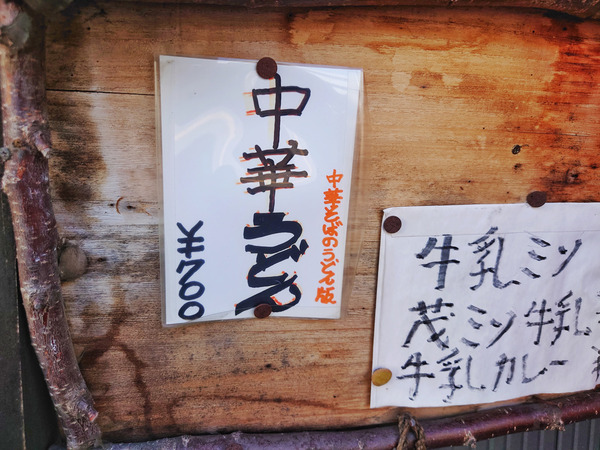 中華うどん
中華そばのうどん版
¥700
牛乳ミソ
茂ミソ牛乳
牛乳カレー